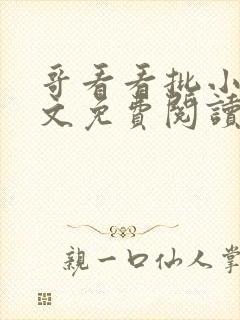 哥看看批小
文免費閱讀
親一口仙人掌